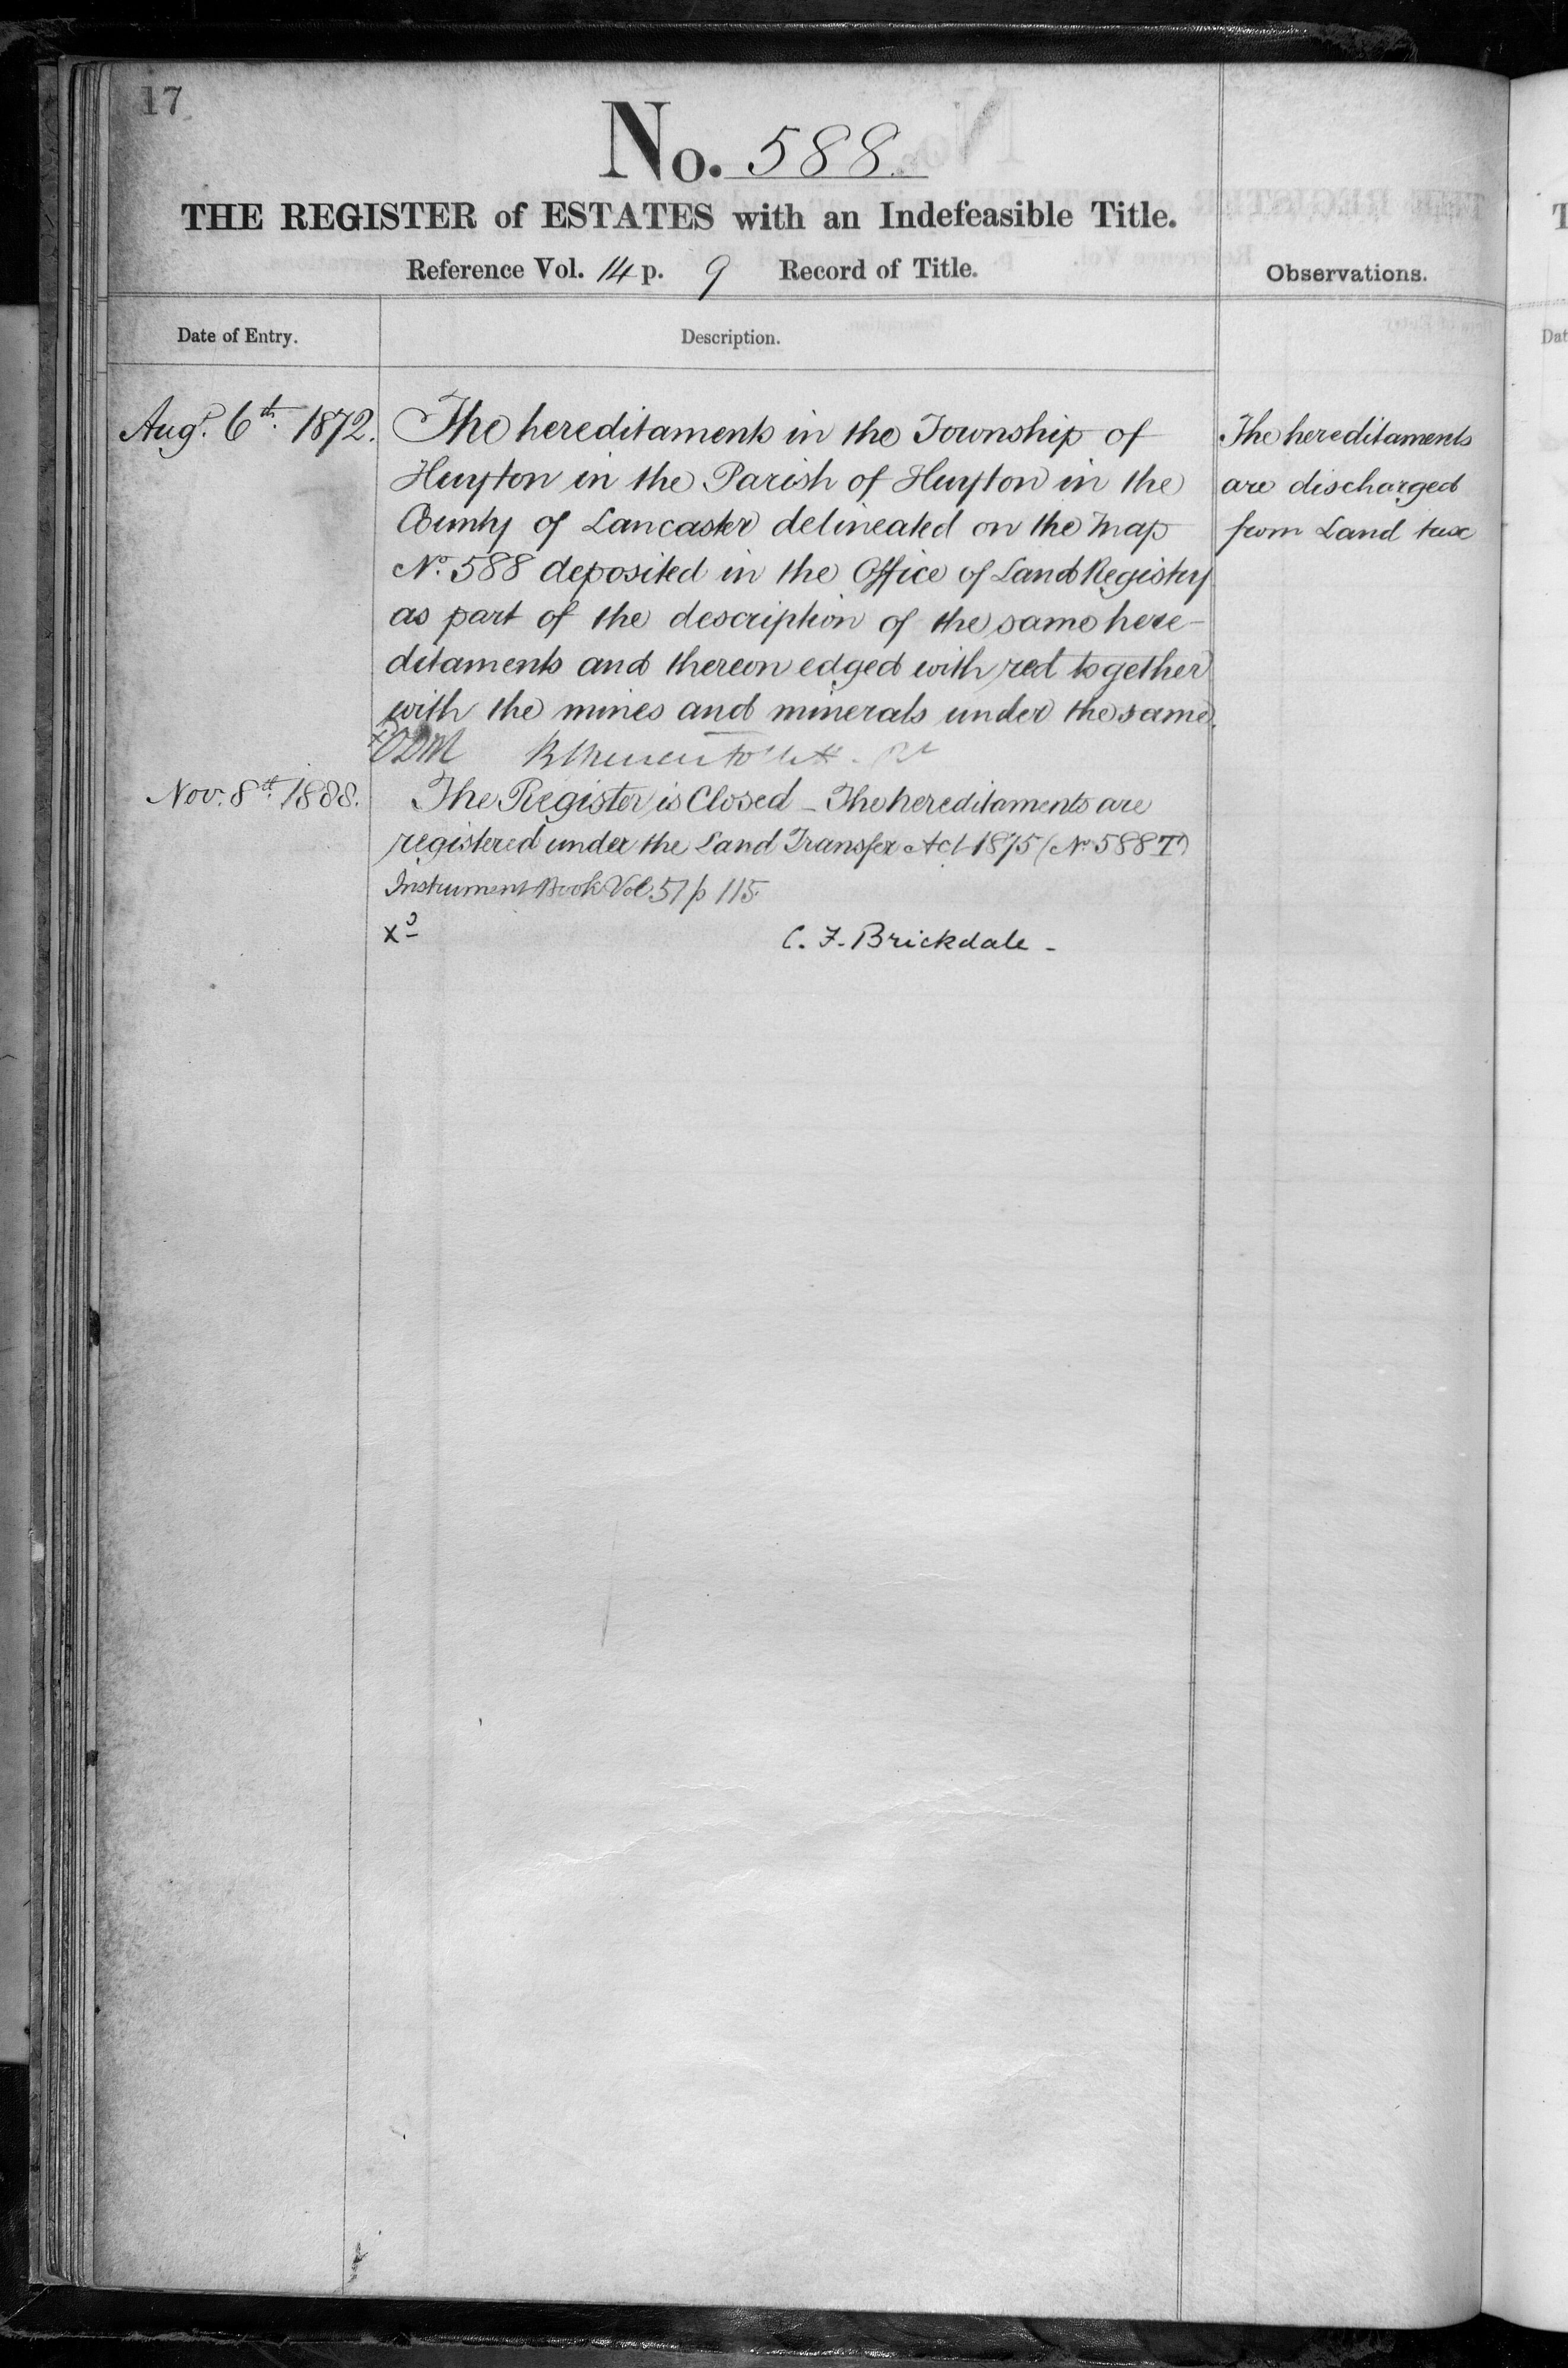 17
No. 588.
THE REGISTER of ESTATES with an Indefeasible Title.
Reference Vol. 14 p. 9 Record of Title.
Observations.
Date of Entry.
Description.
Augt. 6th. 1872.
The hereditaments in the Township of
Huyton in the Parish of Huyton in the
County of Lancaster delineated on the Map
No. 588 deposited in the Office of Land Registry
as part of the description of the same here-
ditaments and thereon edged with red together
with the mines and minerals under the same.
The hereditaments
are discharged
from Land tax
Nov. 8th. 1888.
The Register is Closed - The hereditaments are
registered under the Land Transfer Act 1875 (No 588T)
Instrument Book Vol 57 p 115
C. F. Brickdale -